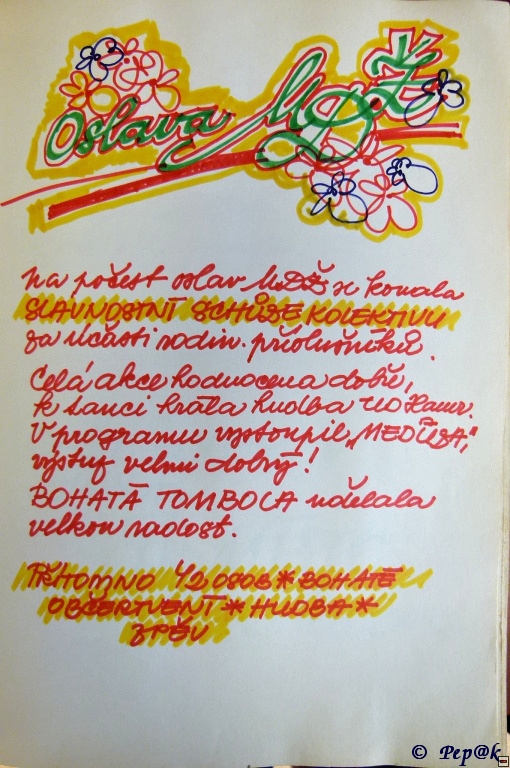 Oslava MDŽ
Na počest oslav MDŽ se konala
SLAVNOSTNÍ SCHŮZE KOLEKTIVU
za účasti rodin. příslušníků.
Celá akce hodnocena dobře,
k tanci hrála hudba
V programu vystoupil „MEDŮZA",
výstup velmi dobrý!
BOHATÁ TOMBOLA udělala
velkou radost.
PŘÍTOMNO 42 OSOB * BOHATÉ
OBČERSTVENÍ * HUDBA *
ZPĚV
© Pep@k